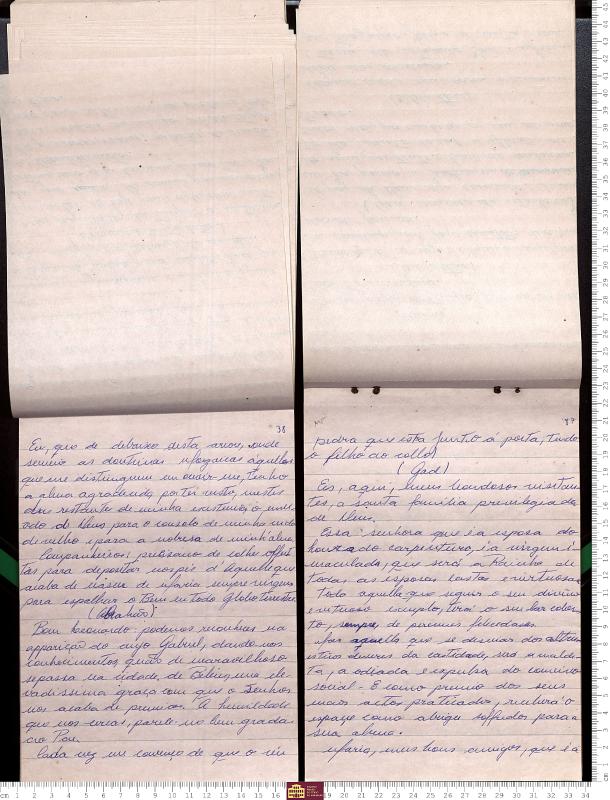 38
Eu, que de debaixo desta arvore, onde
semeio as doutrinas áquelles
que me distinguem em ouvir-me, tenho
a alma agradecida, por ter visto, nestes
dias restantes de minha existencia, o
de Deus, para o consolo de minha vida
de velho e para a nobresa de minh'alma.
Companheiros, precisamos de colher
tas para depositar nos pés d'Aquelle que
acaba de nascer de Maria, sempre virgem
para espalhar o Bem em todo Globo terrestre.
(Abrahão)
Bom podemos reconhecer na
apparição do anjo Gabriel, dando-nos
conhecimentos quão de maravilhoso
se passa na cidade de Belém, uma ele-
vadissima graça com que o Senhor
nos acaba de premiar. A humildade
que nos parece-no bem grada
ao Pae.
Cada vez me convenço de que o
87
pedra que está junto á porta, tendo
o filho ao collo)
(Gad)
Eis, aqui, meus bondosos visitan-
tes, a santa familia privilegiada
de Deus.
Essa senhora que é a esposa do
honrado carpinteiro, é a virgem i-
maculada, que será a Rainha de
todas as esposas castas e virtuosas
Toda aquella que seguir o seu divino
e virtuoso exemplo, terá o seu lar cober-
to, sempre, de perennes felicidades.
Mas aquella que se desviar dos
deveres da castidade, será a maldi-
ta, a odiada e expulsa do convivio
social. E como premio dos seus
maus actos praticados, receberá o
espaço como abrigo para a
sua alma.
Maria, meus bons amigos, que é a